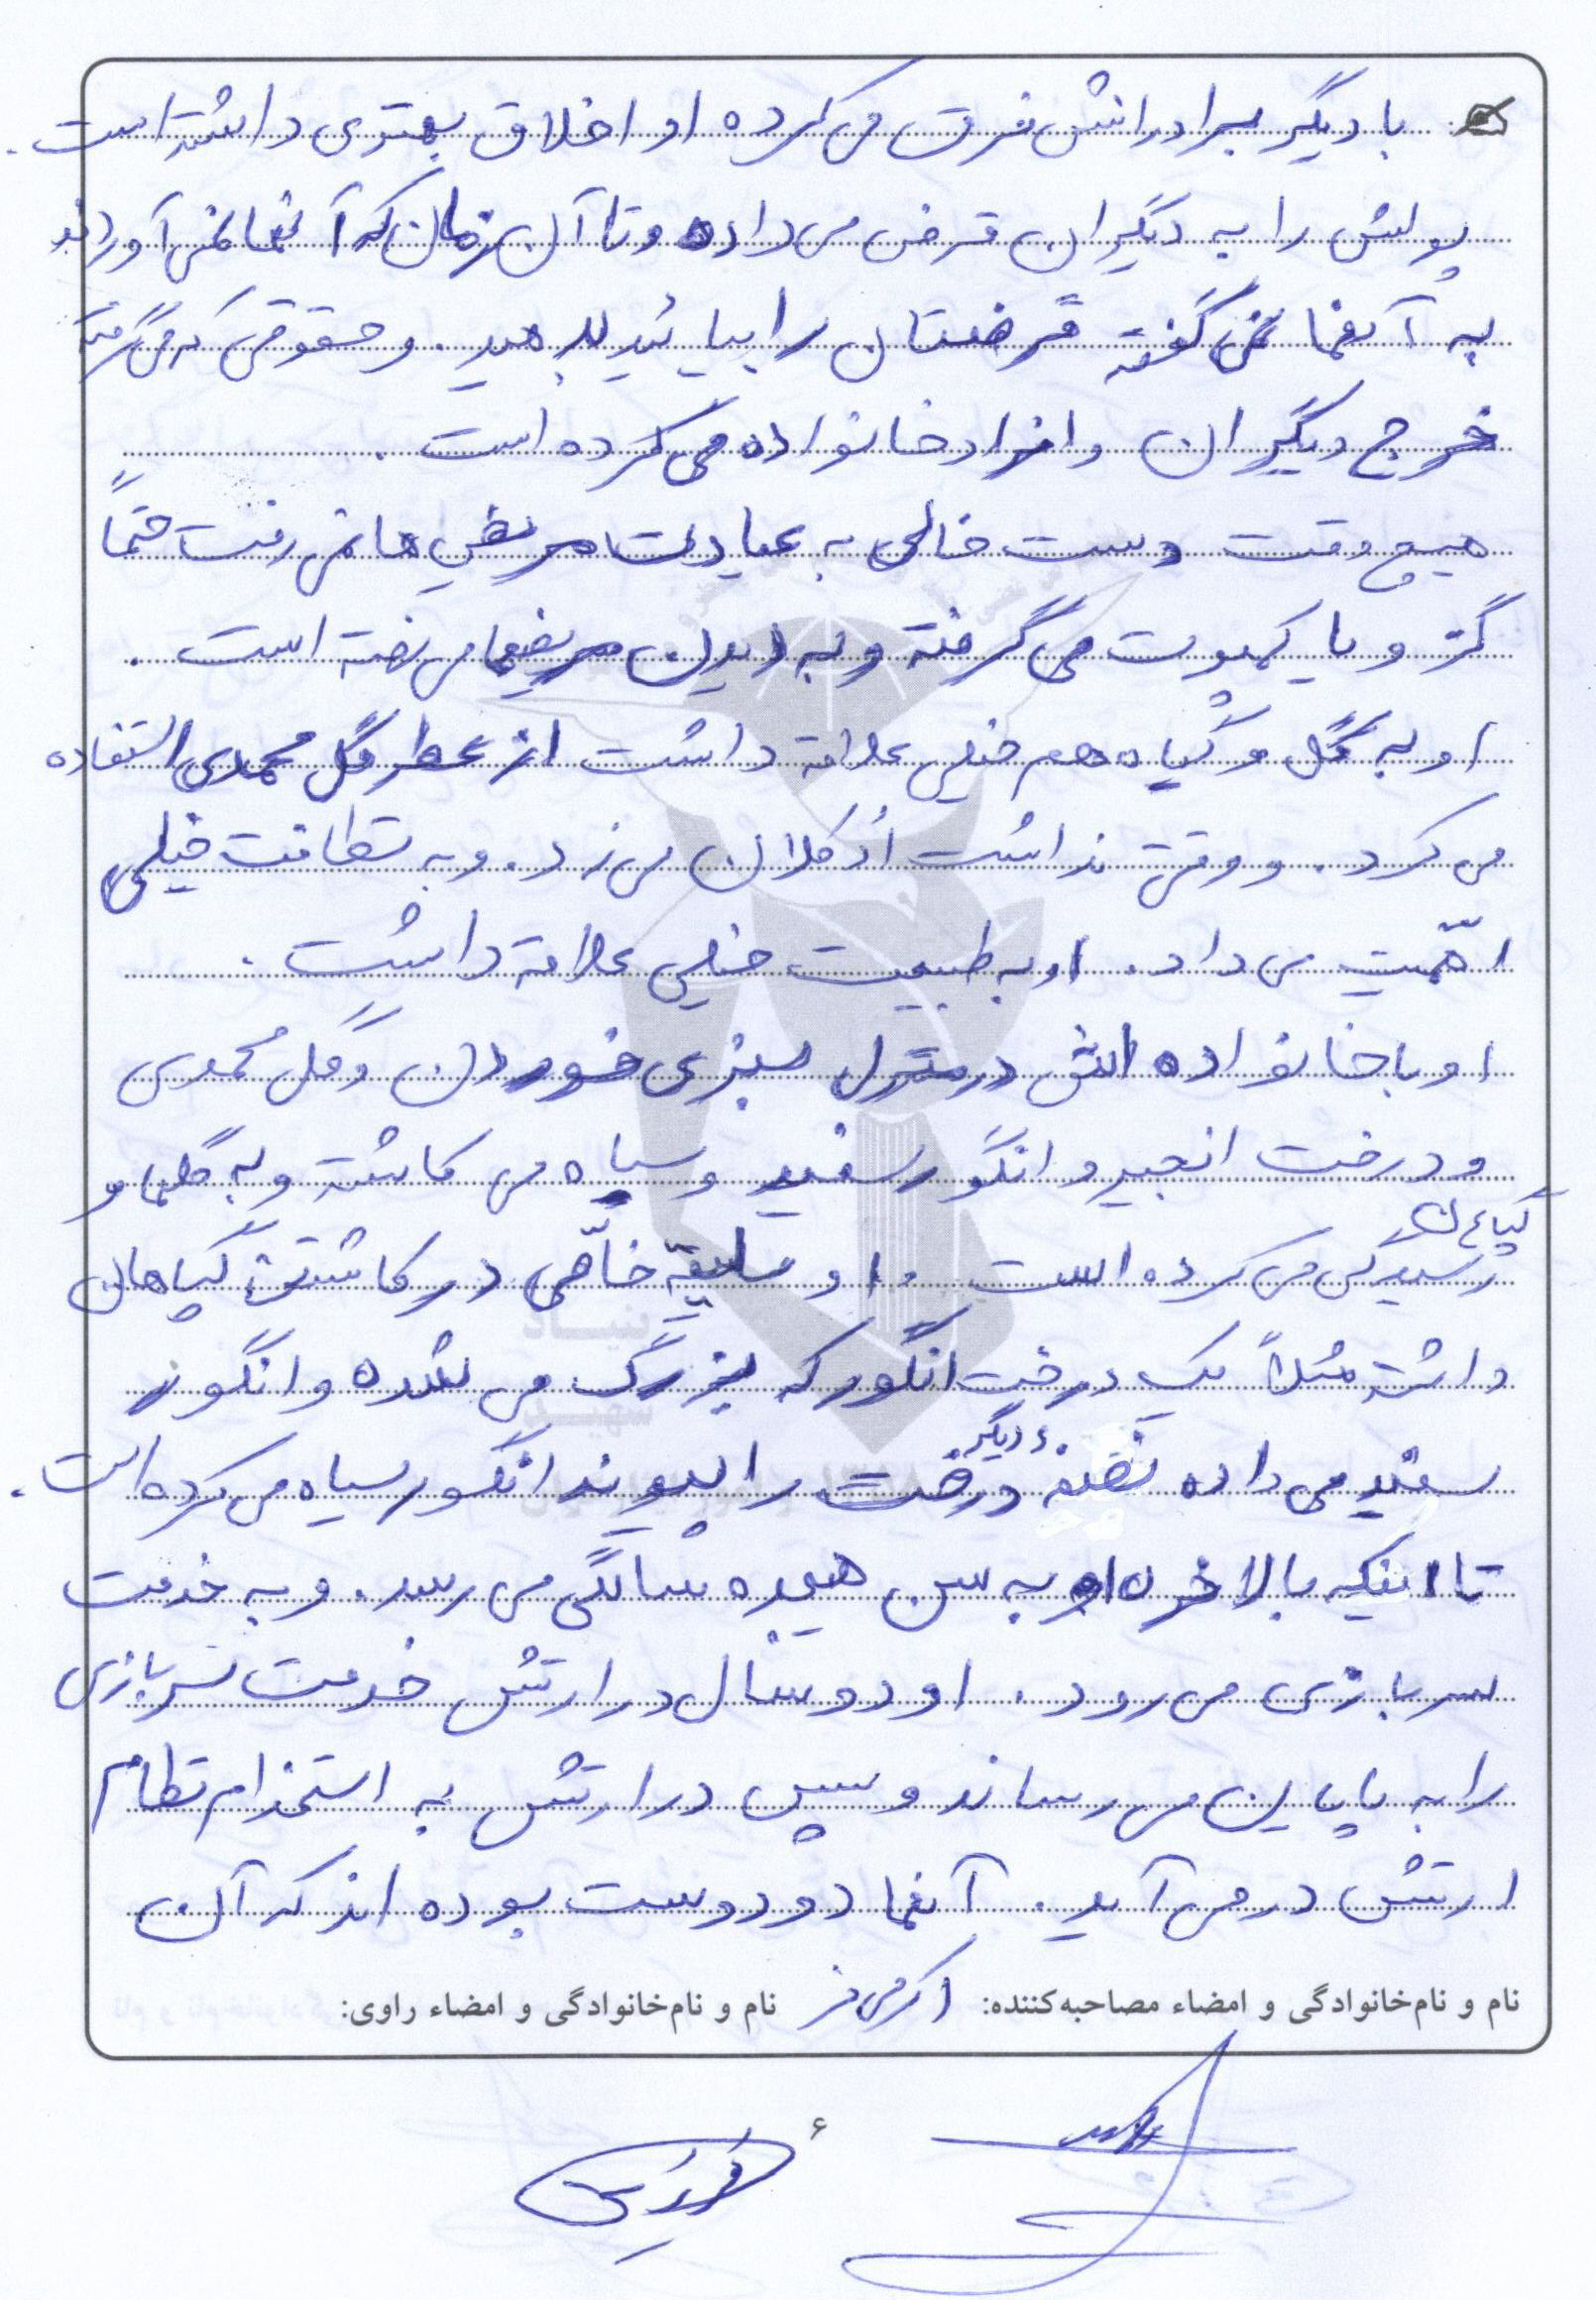 با دیگر برادرانش فرق می‌کرده او اخلاق بهتری داشته است.
پولش را به دیگران قرض می‌داده و تا آن زمان که آنها نمی‌آوردند
به آنها نمی‌گفته قرضتان را بیایید بدهید. و حقوقی که می‌گرفته
خرج دیگران و افراد خانواده می‌کرده است.
هیچ وقت دست خالی به عیادت مریضی‌ها نمی‌رفت حتماً
گز و یا کمپوت می‌گرفته و به دیدن مریضها می‌رفته است.
او به گل و گیاه هم خیلی علاقه داشت از عطر گل محمدی استفاده
می‌کرد. و وقتی نداشت اُدکلان می‌زد. و به نظافت خیلی
اهمّیت می‌داد. او به طبیعت خیلی علاقه داشت.
او با خانواده‌اش در منزل سبزی خوردن و گل محمدی
و درخت انجیر و انگور سفید و سیاه می‌کاشته و به گلها و
گیاهان
رسیدگی می‌کرده است. او سلیقه خاصّی در کاشتن گیاهان
داشته مثلاً یک درخت انگور که بزرگ می‌شده و انگور
سفید می‌داده نصفه دیگر درخت را پیوند انگور سیاه می‌کرده است.
تا اینکه بالاخره او به سن هیجده سالگی می‌رسد. و به خدمت
سربازی می‌رود. او دو سال در ارتش خدمت سربازی
را به پایان می‌رساند و سپس در ارتش به استخدام نظام
ارتش در می‌آید. آنها دو دوست بوده‌اند که آن
نام و نام‌خانوادگی و امضاء مصاحبه‌کننده: اکرمی‌فر نام و نام‌خانوادگی و امضاء راوی:
۶